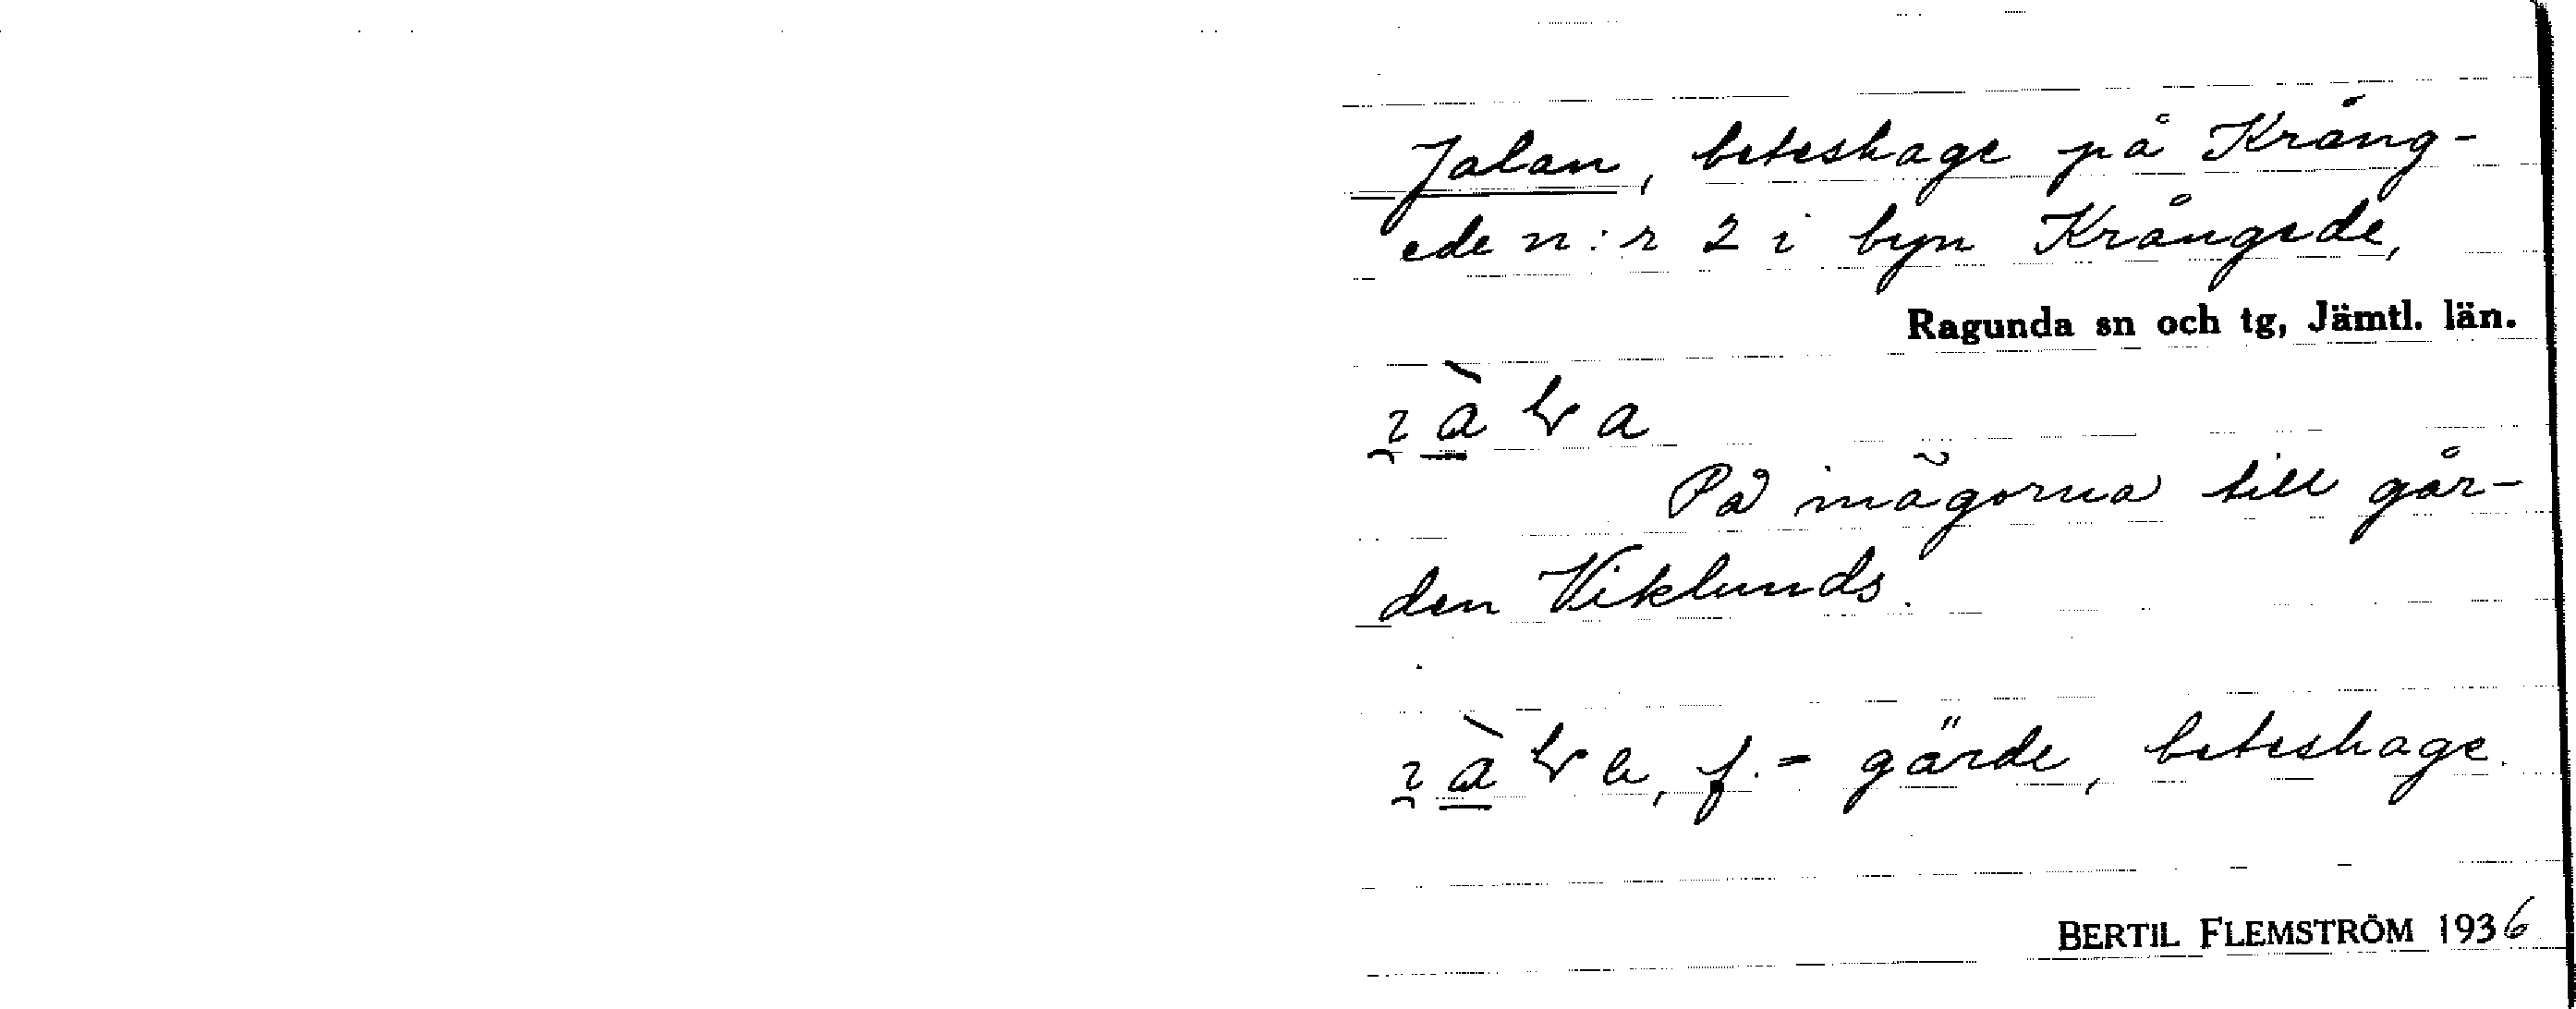 Jalan, beteshage på Krång-
ede n:r 2 i byn Krångede,
Ragunda sn och tg, Jämtl. län.
På inägorna till går-
den Viklunds.
f. = gärde, beteshage.
BERTIL FLEMSTRÖM 1936